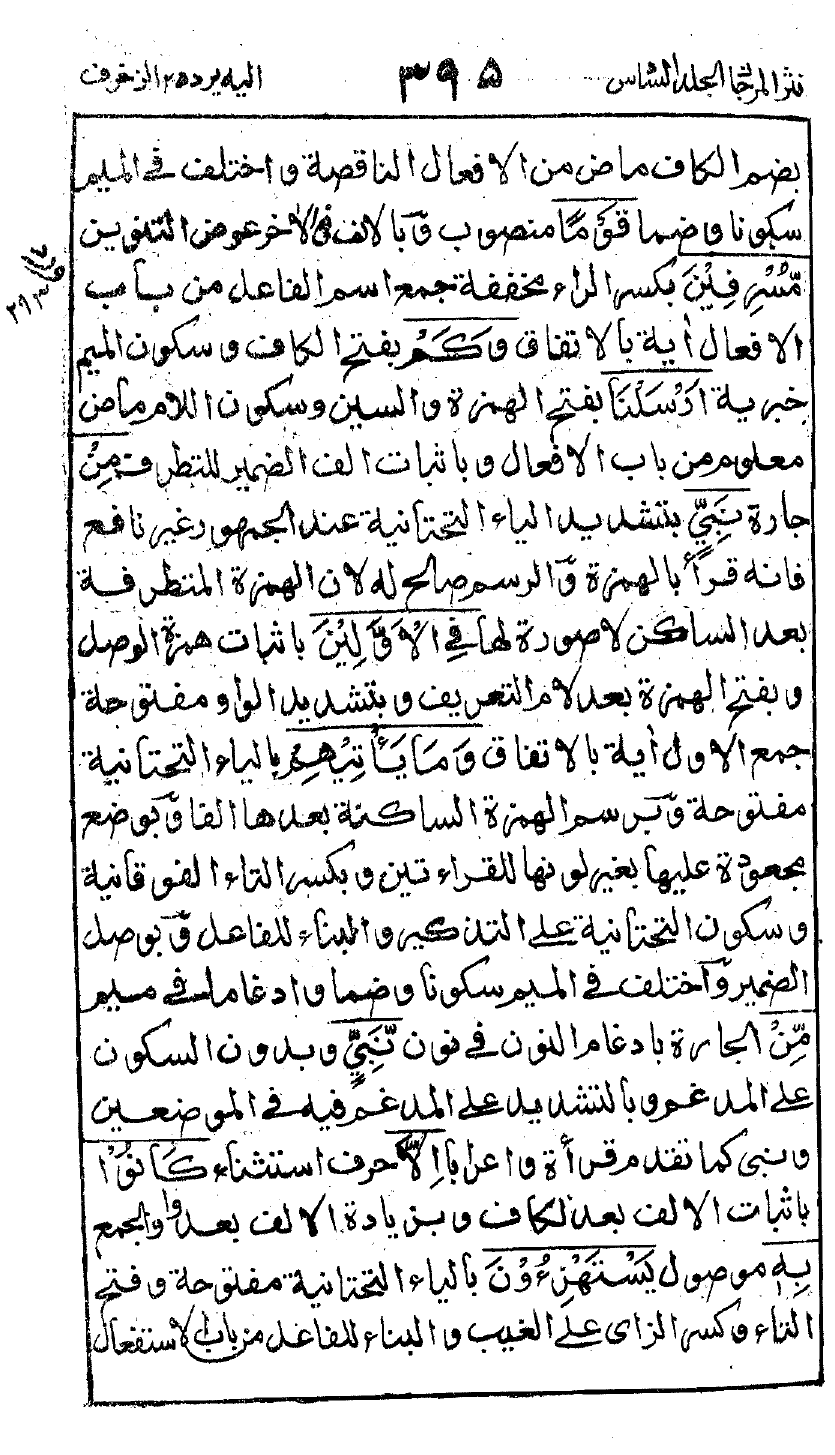 نثر المرجان الجلد السادس ٣٩٥ اليه يرد ٢٥ الزخرف
بضم الكاف ماض من الافعال الناقصة واختلف في الميم
سكونا وضما قَوْمًا منصوب وبالالف في الاخر عوض التنوين
مُّسْرِفِيْنَ بكسر الراء مخففة جمع اسم الفاعل من باب
الافعال أية بالاتفاق وَكَمْ بفتح الكاف وسكون الميم
خبرية اَرْسَلْنَا بفتح الهمزة والسين وسكون اللام ماض
معلوم من باب الافعال وباثبات الف الضمير للتطرف مِنْ
جارة نَّبِيٍّ بتشديد الياء التحتانية عند الجمهور غير نافع
فانه قرأ بالهمزة والرسم صالح له لان الهمزة المتطرفة
بعد الساكن لا صورة لها فِي الْاَوَّلِيْنَ باثبات همزة الوصل
وبفتح الهمزة بعد لام التعريف وبتشديد الواو مفتوحة
جمع الاول أية بالاتفاق وَمَا يَأْتِيْهِمْ بالياء التحتانية
مفتوحة وبرسم الهمزة الساكنة بعدها الفا وبوضع
مجعودة عليها بغير لونها للقراءتين وبكسر التاء الفوقانية
وسكون التحتانية على التذكير والبناء للفاعل وبوصل
الضمير واختلف في الميم سكونا وضما وادغاما في ميم
مِّنْ الجارة بادغام النون في نون نَّبِيٍّ وبدون السكون
على المدغم وبالتشديد على المدغم فيه في الموضعين
ونبى كما تقدم قرأة واعرابا اِلَّا حرف استثناء كَانُوْا
باثبات الالف بعد الكاف وبزيادة الالف بعد واو الجمع
بِهٖ موصول يَسْتَهْزِءُوْنَ بالياء التحتانية مفتوحة وفتح
التاء وكسر الزاى على الغيب والبناء للفاعل من باب الاستفعال